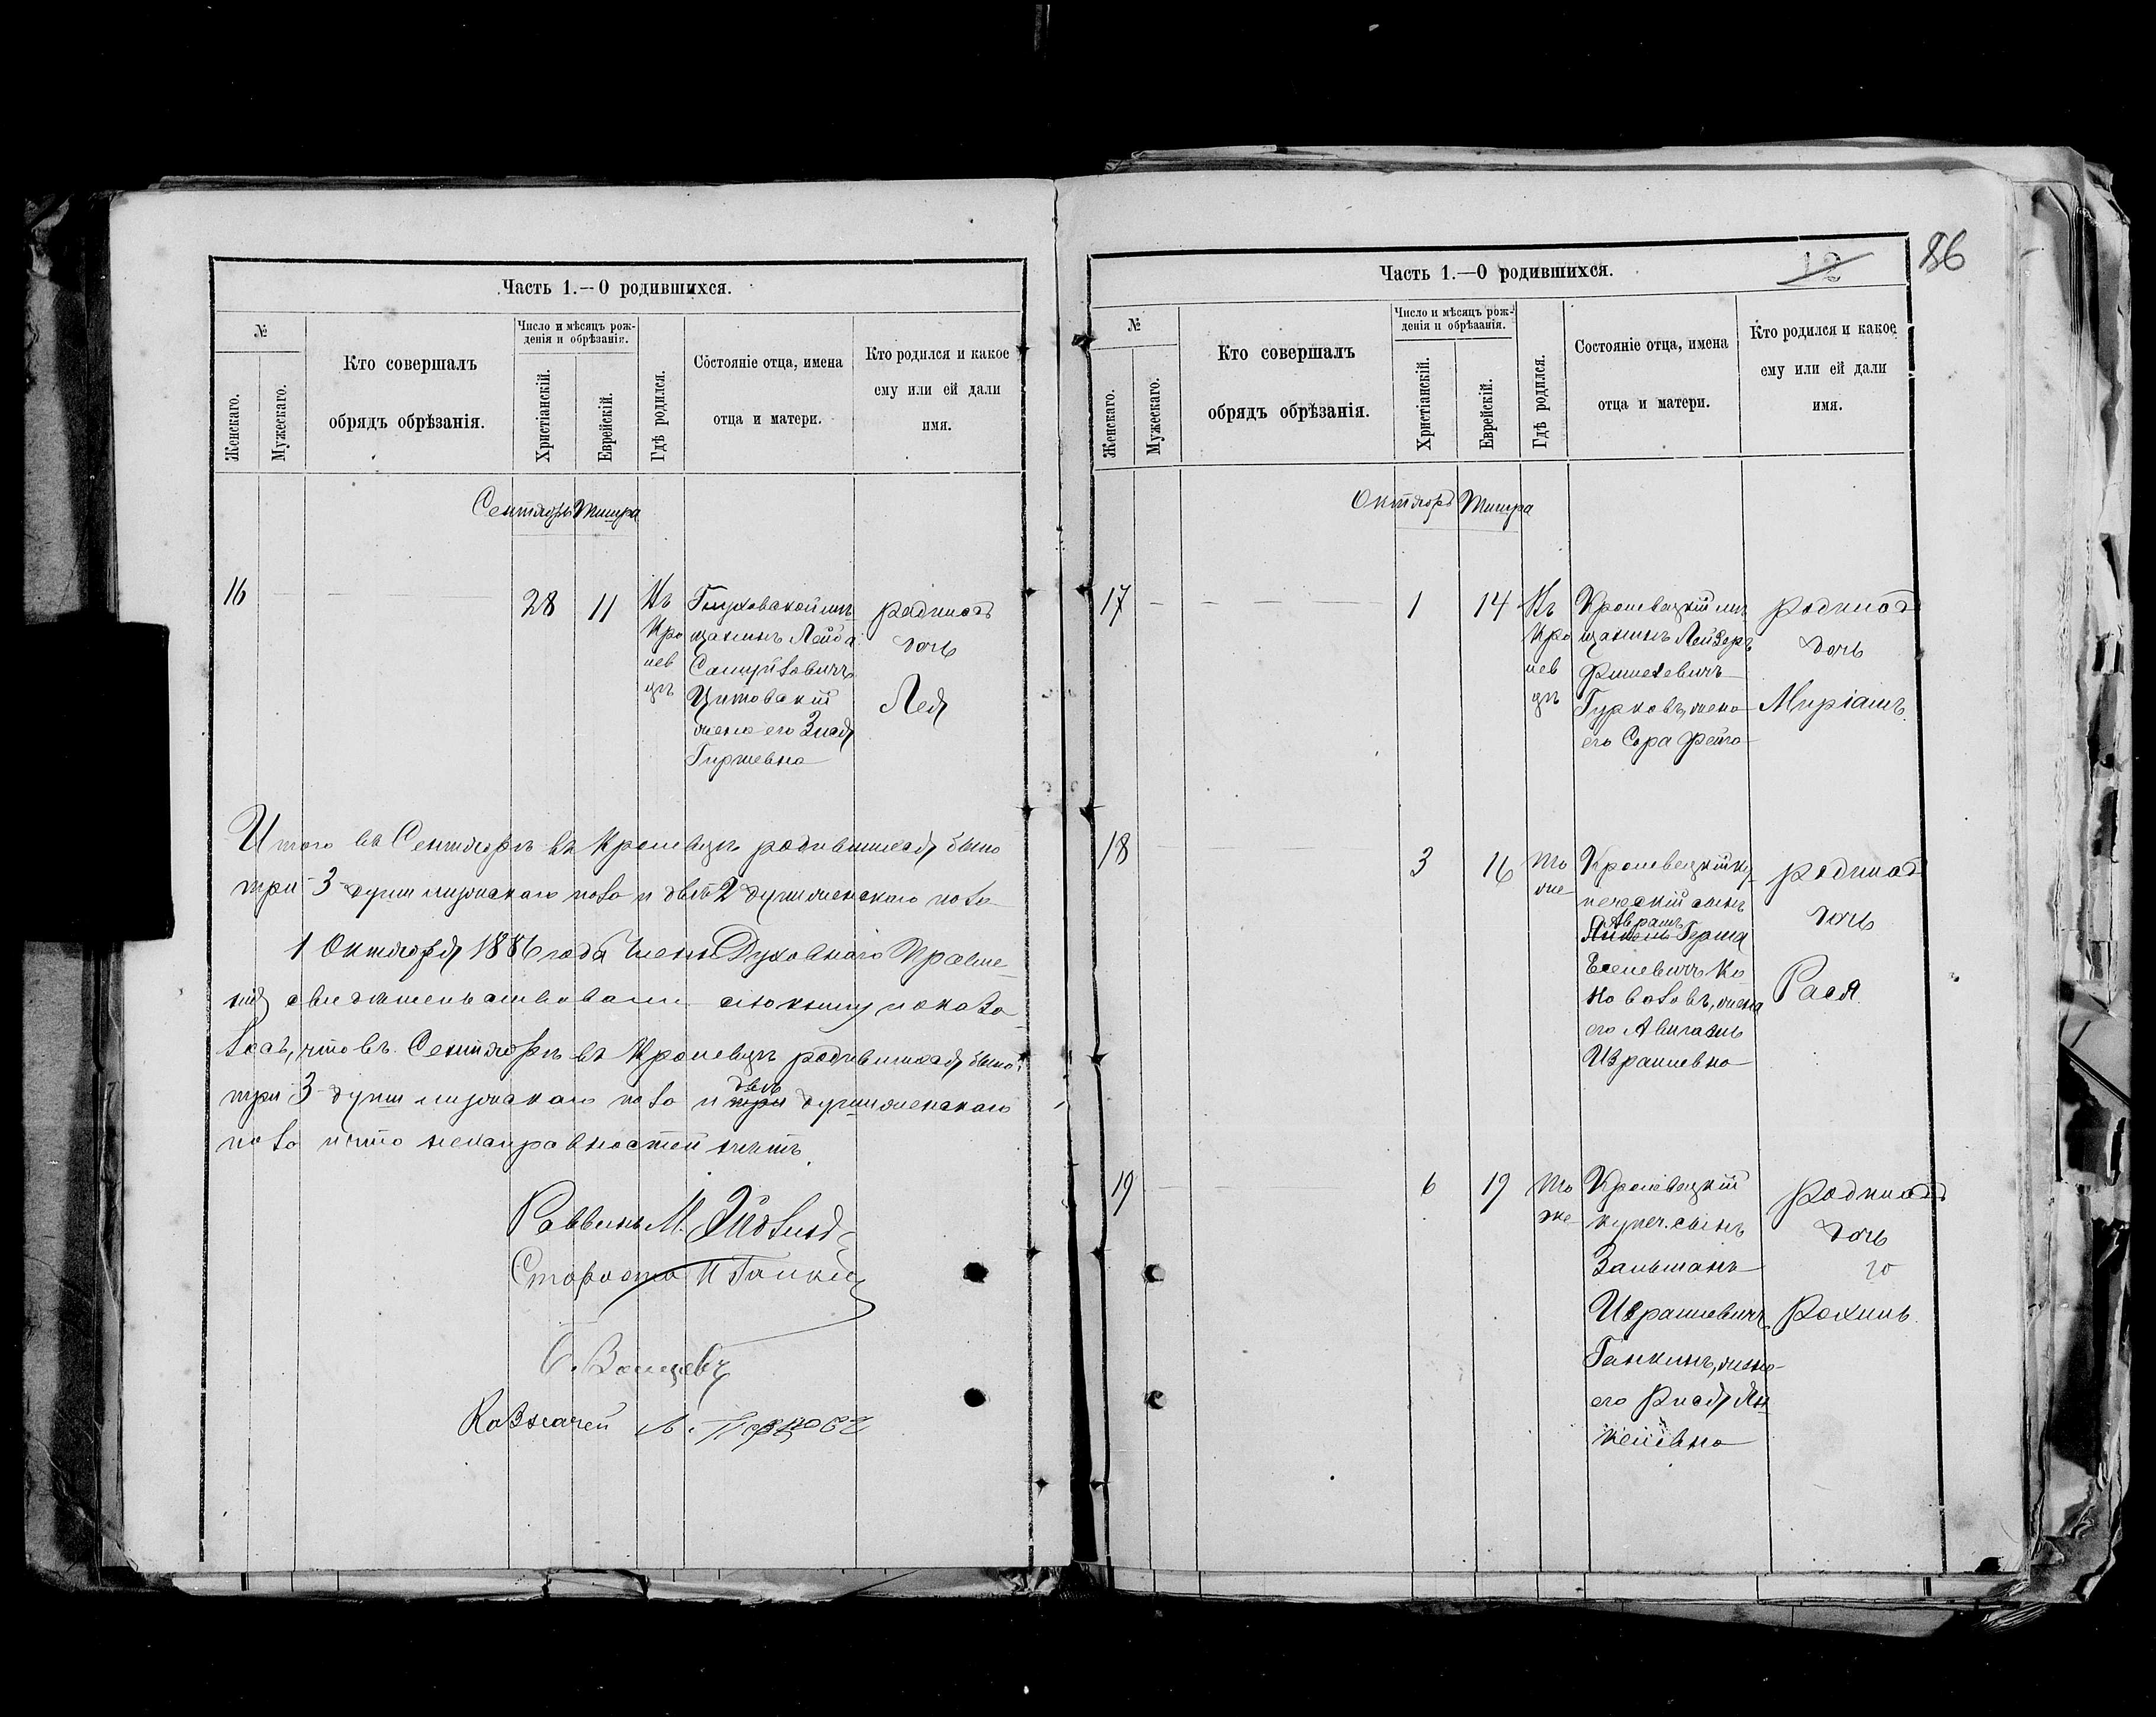 Часть 1.—О родившихся.
№
Женскаго.
Мужескаго.
Кто совершалъ
обрядъ обрѣзанія.
Число и мѣсяцъ рож-
денія и обрѣзанія.
Христіанскій.
Еврейскій.
Гдѣ родился.
Состояніе отца, имена
отца и матери.
Кто родился и какое
ему или ей дали
имя.
Сентябрь Тишра
16
28
11
Въ
Кро
лев
цѣ
Глуховской мѣ
щанинъ Лейба
Самуйловичъ
Цитовскій
жена его Злад
Гиршевна
родилась
дочь
Лея
Итого въ Сентябрѣ въ Кролевцѣ родившихся было
три 3 души мужскаго пола и двѣ 2 души женскаго пола
1 Октября 1886 года Члены Духовнаго Правле-
нія свидѣтельствовали сію книгу и оказа
лось, что въ Сентябрѣ въ Кролевцѣ родившихся было
три 3 души мужскаго пола и три двѣ души женскаго
пола и что неисправностей нѣтъ.
Раввинъ М.
Староста
Казначей Л.
Часть 1.—О родившихся.
12
86
№
Женскаго.
Мужескаго.
Кто совершалъ
обрядъ обрѣзанія.
Число и мѣсяцъ рож-
денія и обрѣзанія.
Христіанскій.
Еврейскій.
Гдѣ родился.
Состояніе отца, имена
отца и матери.
Кто родился и какое
ему или ей дали
имя.
Октябрь Тишра
17
1
14
Въ
Кро
лев
цѣ
Кролевецкій мѣ
щанинъ Лейзеръ
Фишелевичъ
Гурковъ, жена
его Сора Фейга
родилась
дочь
Миріамъ.
18
3
16
То
же
Кролевецкій ку
печескій сынъ
Абрамъ
Гериа
Еселевичъ Ко
новаловъ, жена
его Авигаиль
Израилевна
родилась
дочь
Рася.
19
6
19
То
же
Кролевецкій
купеч. сынъ
Зальманъ
Израилевичъ
Ганкинъ, жена
его Рися Ян
келевна
родилась
дочь
Рохиль.